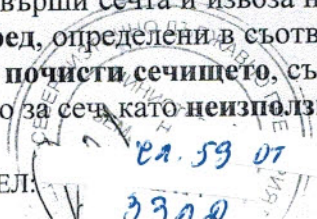 върши сечта и извоза н
ред, определени в съотв
почисти сечището, съ
о за сеч, като неизползв
чл. 59 от
ЕЛ:
ЗЗЛД